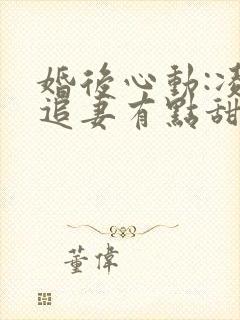 婚後心動:凌
追妻有點甜
董偉